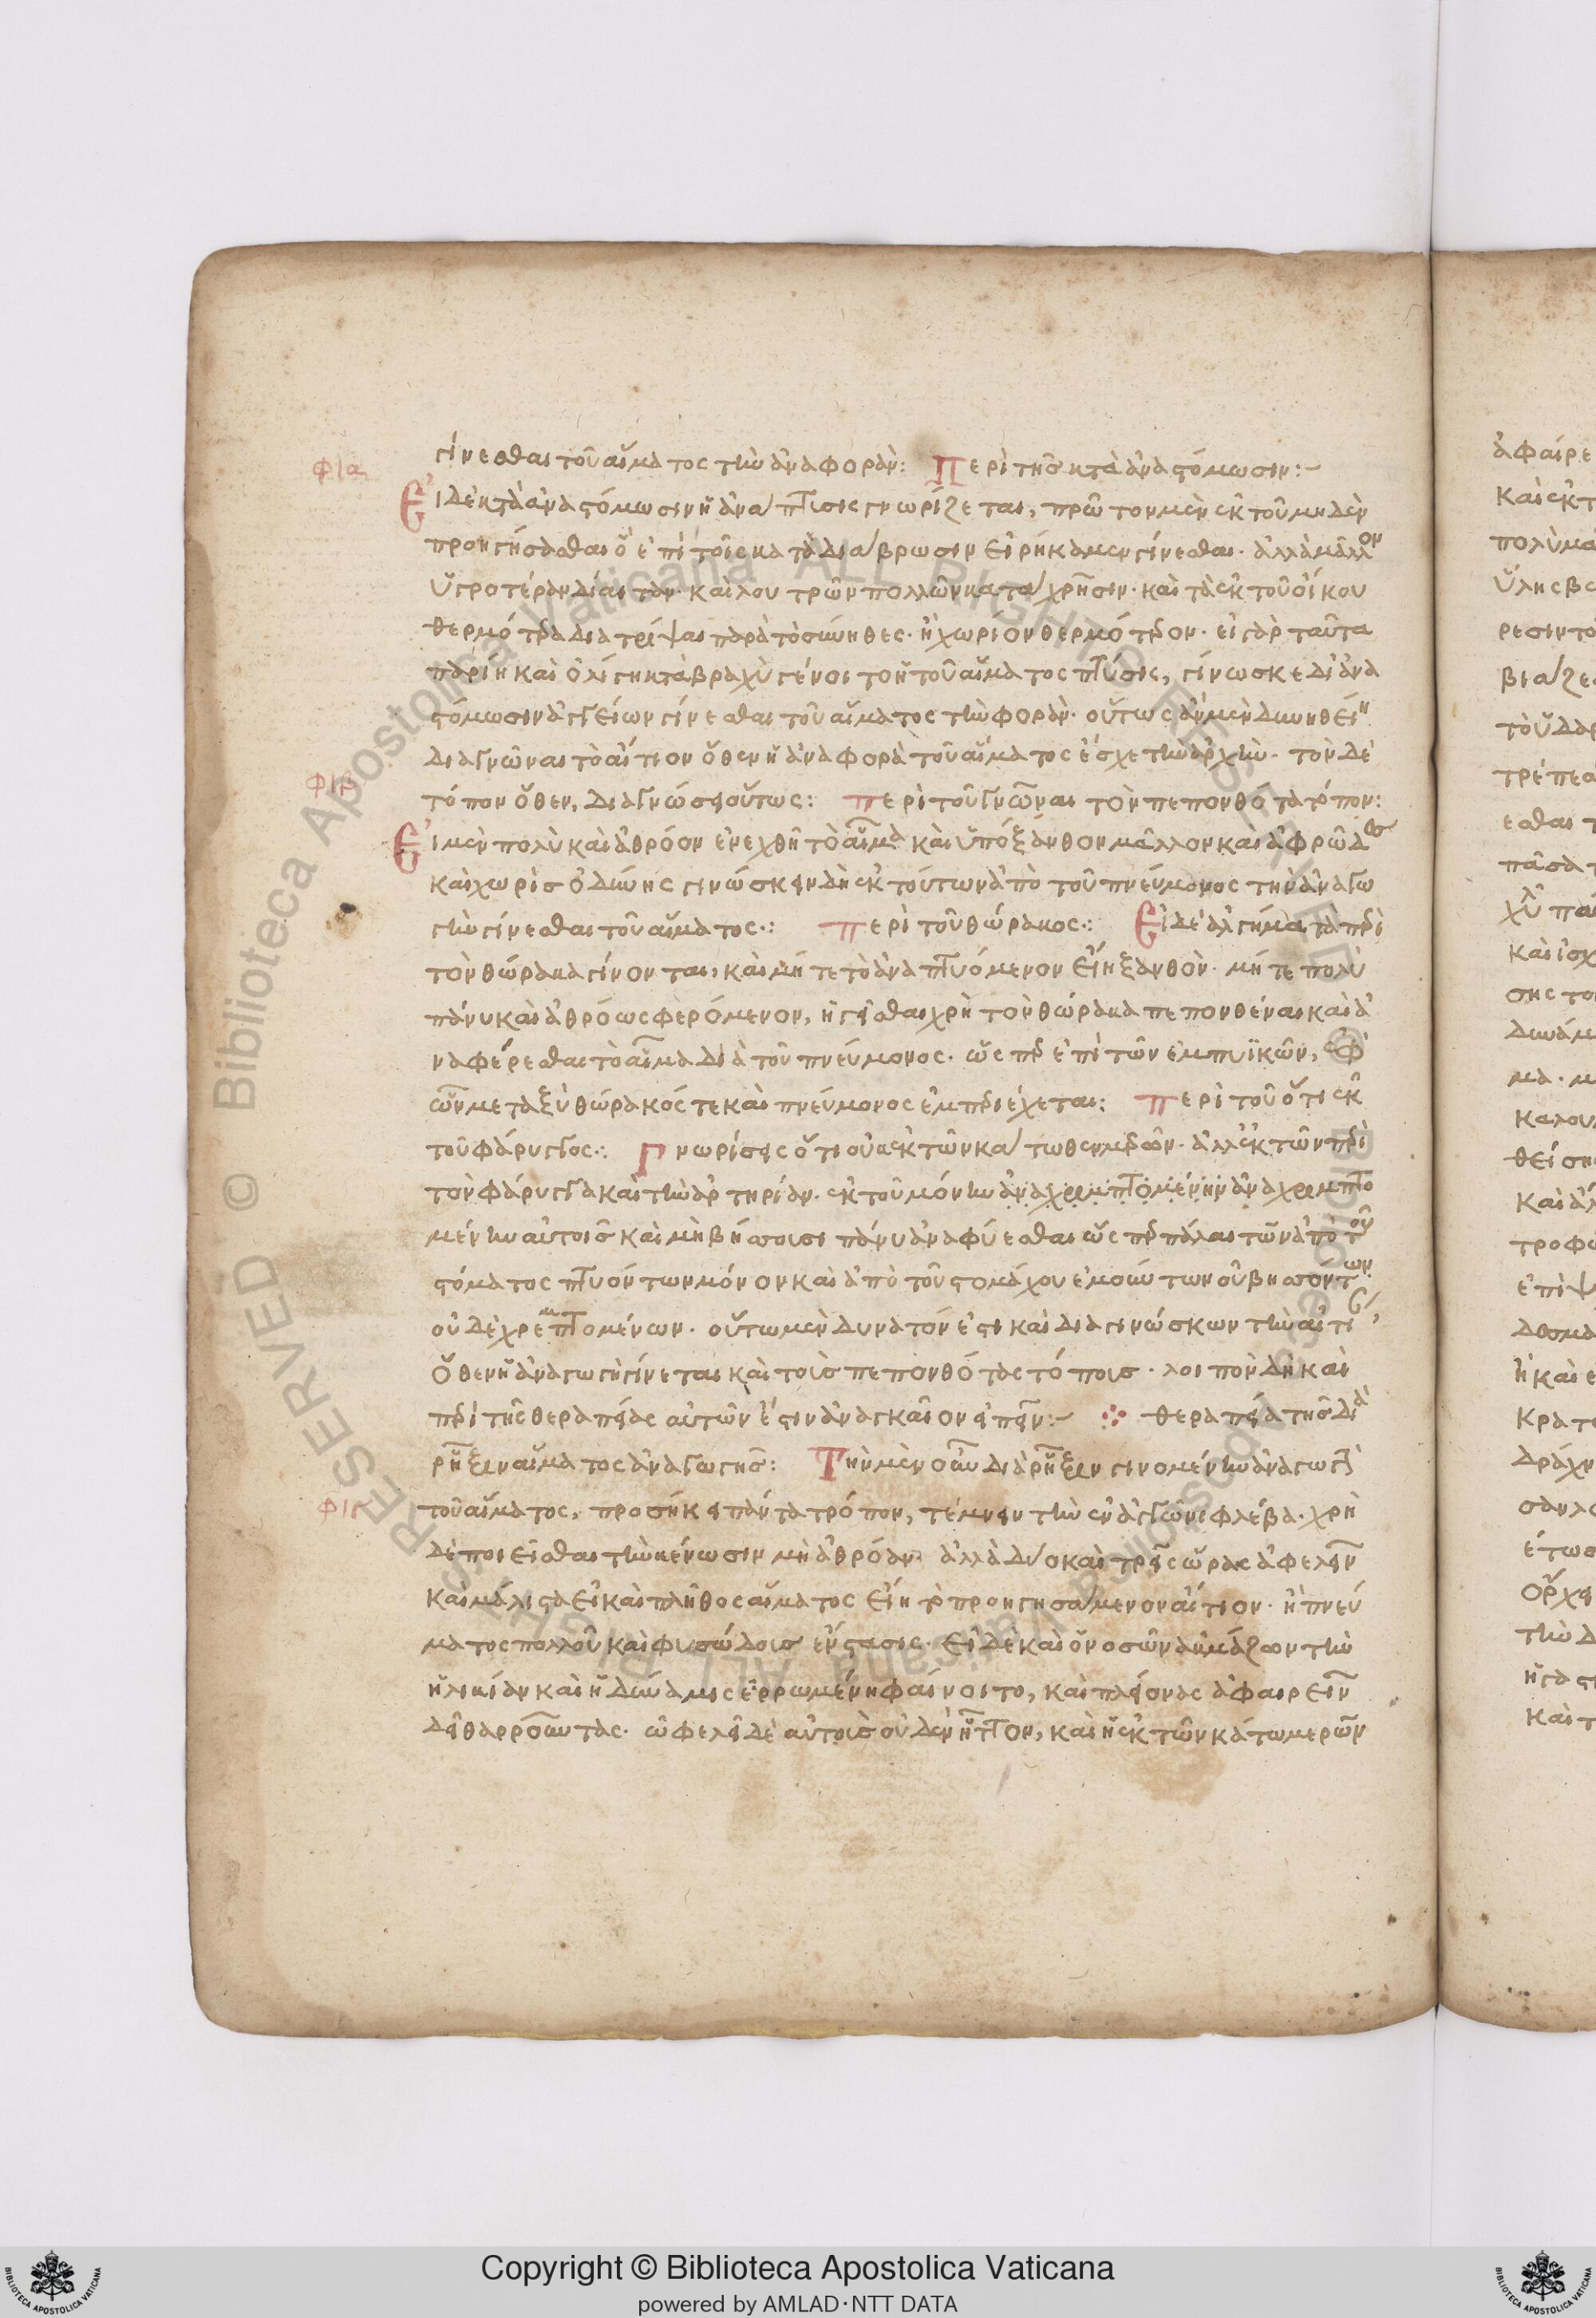 γίνεσθαι τοῦ αἵματος τὴν ἀναφοράν: Περὶ τῆς κτὰ ἀναστόμωσιν:
φια
Εἰ δὲ κτὰ ἀναστόμωσιν ἡ ἀνάπτισις γνωρίζεται, πρῶτον μὲν ἐκ τοῦ μηδὲν
προηγήσασθαι ὃ ἐπὶ τοῖς κατὰ διάβρωσιν εἰρήκαμεν γίνεσθαι. ἀλλὰ μᾶλλον
ὑγροτέραν δίαιταν. καὶ λουτρῶν πολλῶν κατάχρησιν. καὶ τὰ ἐκ τοῦ οἴκου
θερμότρα διατρίψαι παρὰ τὸ σύνηθες. ἢ χωρίον θερμότρον. εἰ γὰρ ταῦτα
παρείη καὶ ὀλίγη κτὰ βραχὺ γένοιτο ἡ τοῦ αἵματος πτύσις, γίνωσκε δι' ἀνα
στόμωσιν ἀγγείων γίνεσθαι τοῦ αἵματος τὴν φοράν. οὕτως ἂν μὲν δυνηθείη
διαγνῶναι τὸ αἴτιον ὅθεν ἡ ἀναφορὰ τοῦ αἵματος ἔσχε τὴν ἀρχήν. τὸν δὲ
τόπον ὅθεν, διαγνώσῃ οὕτως: περὶ τοῦ γνῶναι τὸν πεπονθότα τρόπον:
Εἰ μὲν πολὺ καὶ ἀθρόον ἐνεχθῇ τὸ αἷμα καὶ ὑπόξανθον μᾶλλον καὶ ἀφρῶδες
καὶ χωρὶς ὀδύνης γινώσκειν δὴ ἐκ τούτων ἀπὸ τοῦ πνεύμονος τὴν ἀναγω
γὴν γίνεσθαι τοῦ αἵματος: περὶ τοῦ θώρακος: Εἰ δὲ ἀλγήματα πρὶ
τὸν θώρακα γίνονται, καὶ μήτε τὸ ἀναπτυόμενον εἴη ξανθόν. μήτε πολὺ
πάνυ καὶ ἀθρόως φερόμενον, ἡγεῖσθαι χρὴ τὸν θώρακα πεπονθέναι καὶ ἀ
ναφέρεσθαι τὸ αἷμα διὰ τοῦ πνεύμονος. ὥσπρ ἐπὶ τῶν ἐμπυϊκῶν, ἐφ'
ὧν μεταξὺ θώρακός τε καὶ πνεύμονος ἐμπριέχεται: περὶ τοῦ ὅτι ἐκ
τοῦ φάρυγγος: Γνωρίσεις ὅτι οὐκ ἐκ τῶν κάτωθεν μερῶν. ἀλλ' ἐκ τῶν πρὶ
τὸν φάρυγγα καὶ τὴν ἀρτηρίαν. ἐκ τοῦ μόνην ἀναχρεμπτομένην ἀναχρεμπτο
μένην αὐτοῖς καὶ μὴ βήσσουσι πάνυ ἀναφύεσθαι ὥσπρ πάλαι τῶν ἀπὸ τοῦ
στόματος πτυόντων μόνον καὶ ἀπὸ τοῦ στομάχου ἐμούντων οὐ βησσόντων
οὐδὲ χρεμπτομένων. οὕτω μὲν δυνατόν ἐστι καὶ διαγινώσκων τὴν αἰτί
ὅθεν ἡ ἀναγωγὴ γίνεται καὶ τοὺς πεπονθότας τόποις. λοιπὸν δὴ καὶ
πρὶ τῆς θεραπείας αὐτῶν ἐστιν ἀναγκαῖον εἰπεῖν: θεραπεία τῆς διὰ
ρῆξιν αἵματος ἀναγωγῆς: Τὴν μὲν οὖν διὰ ρῆξιν γινομένην ἀναγωγὴ
τοῦ αἵματος, προσήκει πάντα τρόπον, τέμνειν τὴν ἐν ἀγκῶνι φλέβα. χρὴ
δὲ ποιεῖσθαι τὴν κένωσιν μὴ ἀθρόαν ἀλλὰ δύο καὶ τρεῖς ὥρας ἀφελεῖν
καὶ μάλιστα εἰ καὶ πλῆθος αἵματος εἴη τὸ προηγησάμενον αἴτιον. ἢ πνεύ
ματος πολλοῦ καὶ φυσώδους ἔνστασις. εἰ δὲ καὶ ὁ νοσῶν ἀκμάζων τὴν
ἡλικίαν καὶ ἡ δύναμις ἐρρωμένη φαίνοιτο, καὶ πλείονας ἀφαιρεῖν
δεῖ θαρροῦντας. ὠφελεῖ δὲ αὐτοῖς οὐδὲν ἧττον, καὶ ἡ ἐκ τῶν κάτω μερῶν
Copyright © Biblioteca Apostolica Vaticana
powered by AMLAD·NTT DATA